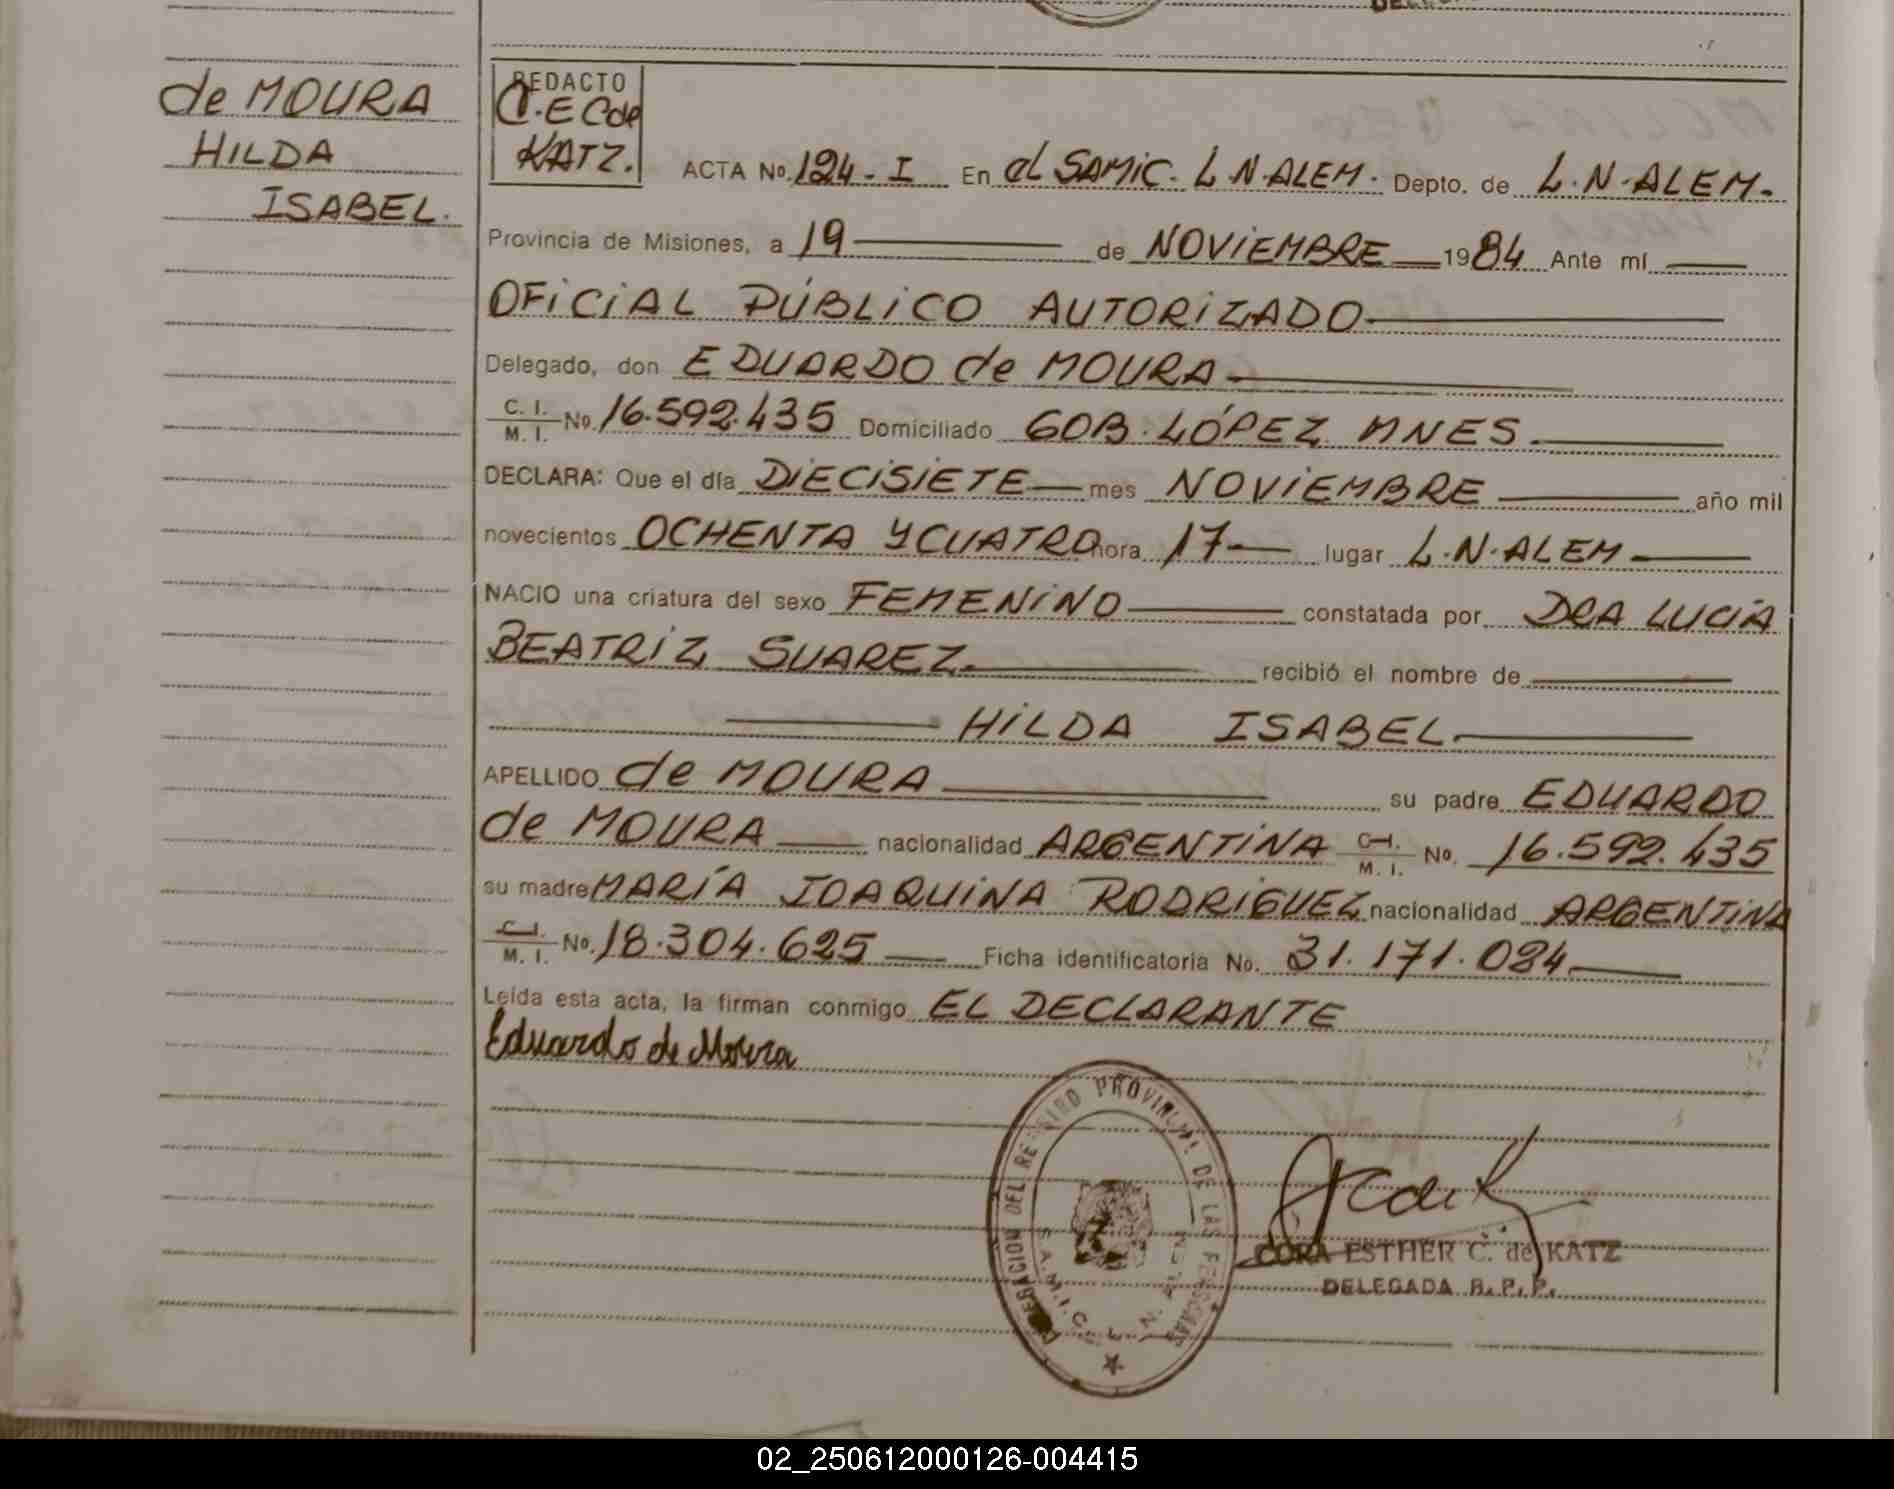 de MOURA
HILDA
ISABEL.
REDACTO
C.E C de
KATZ.
ACTA No. 124 - I En el SAMIC. L N. ALEM. Depto. de L. N. ALEM.
Provincia de Misiones, a 19 de NOVIEMBRE 1984 Ante mí
OFICIAL PÚBLICO AUTORIZADO
Delegado, don EDUARDO de MOURA
C. I. / M. I. No. 16.592.435 Domiciliado GOB. LÓPEZ MNES.
DECLARA: Que el día DIECISIETE mes NOVIEMBRE año mil
novecientos OCHENTA Y CUATRO hora 17 lugar L. N. ALEM
NACIO una criatura del sexo FEMENINO constatada por DRA LUCIA
BEATRIZ SUAREZ. recibió el nombre de
HILDA ISABEL.
APELLIDO de MOURA su padre EDUARDO
de MOURA nacionalidad ARGENTINA C. I. / M. I. No. 16.592.435
su madre MARÍA JOAQUINA RODRIGUEZ nacionalidad ARGENTINA
C. I. / M. I. No. 18.304.625 Ficha identificatoria No. 31.171.084
Leída esta acta, la firman conmigo EL DECLARANTE
Eduardo de Moura
DELEGACION DEL REGISTRO PROVINCIAL DE LAS PERSONAS
S.A.M.I.C. L. N. ALEM
CORA ESTHER C. de KATZ
DELEGADA R. P. P.
02_250612000126-004415